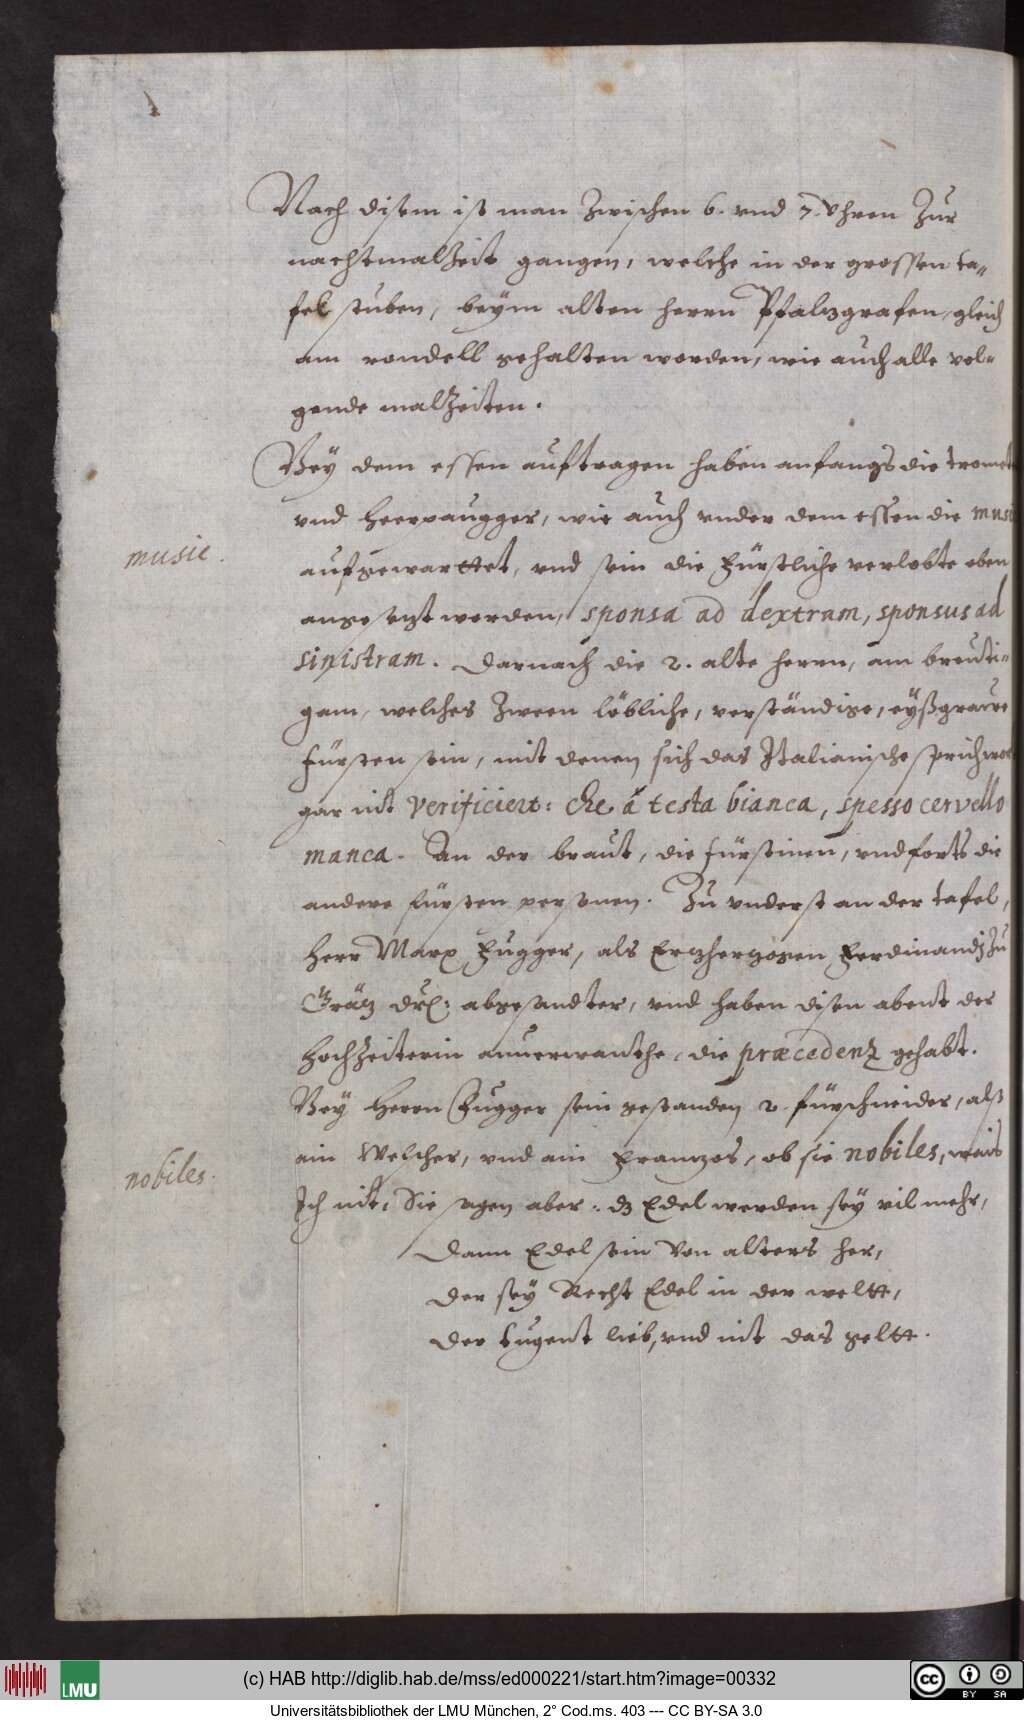 Nach disem ist man zwischen 6. vnd 7. Vhren zur
nachtmalzeit gangen, welche in der grossen ta-
fel stuben, beym alten herrn Pfalzgrafen, gleich
am rondell gehalten worden, wie auch alle vol-
gende malzeiten.
Bey dem essen auftragen haben anfangs die tromet
vnd heerpaugger, wie auch vnder dem essen die musi
music.
aufgewarttet, vnd sein die Fürstliche verlobte oben
angesetzt worden, sponsa ad dextram, sponsus ad
sinistram. Darnach die 2. alte herrn, am breuti-
gam, welches zween löbliche, verständige, eyßgrawe
Fürsten sein, mit denen sich das Italianische sprichwor
gar nit verificiert: che à testa bianca, spesso cervello
manca. An der braut, die Fürstinen, vnd forts die
andere Fürsten personen. Zu vnderst an der tafel,
herr Marx Fugger, als Erzherzogen Ferdinandj zu
Gräz drl: abgesandter, vnd haben disen abent der
hochzeiterin anuerwanthe, die præcedenz gehabt.
Bey herrn Fugger sein gestanden 2. fürschneider, alß
ain Welscher, vnd ain Franzos, ob sie nobiles, wais
nobiles.
Ich nit, Sie sagen aber: dz Edel werden sey vil mehr,
Dann Edel sein von alters her,
Der sey Recht Edel in der weltt,
Der tugent lieb, vnd nit das geltt.
(c) HAB http://diglib.hab.de/mss/ed000221/start.htm?image=00332
LMU
CC BY SA
Universitätsbibliothek der LMU München, 2° Cod.ms. 403 --- CC BY-SA 3.0